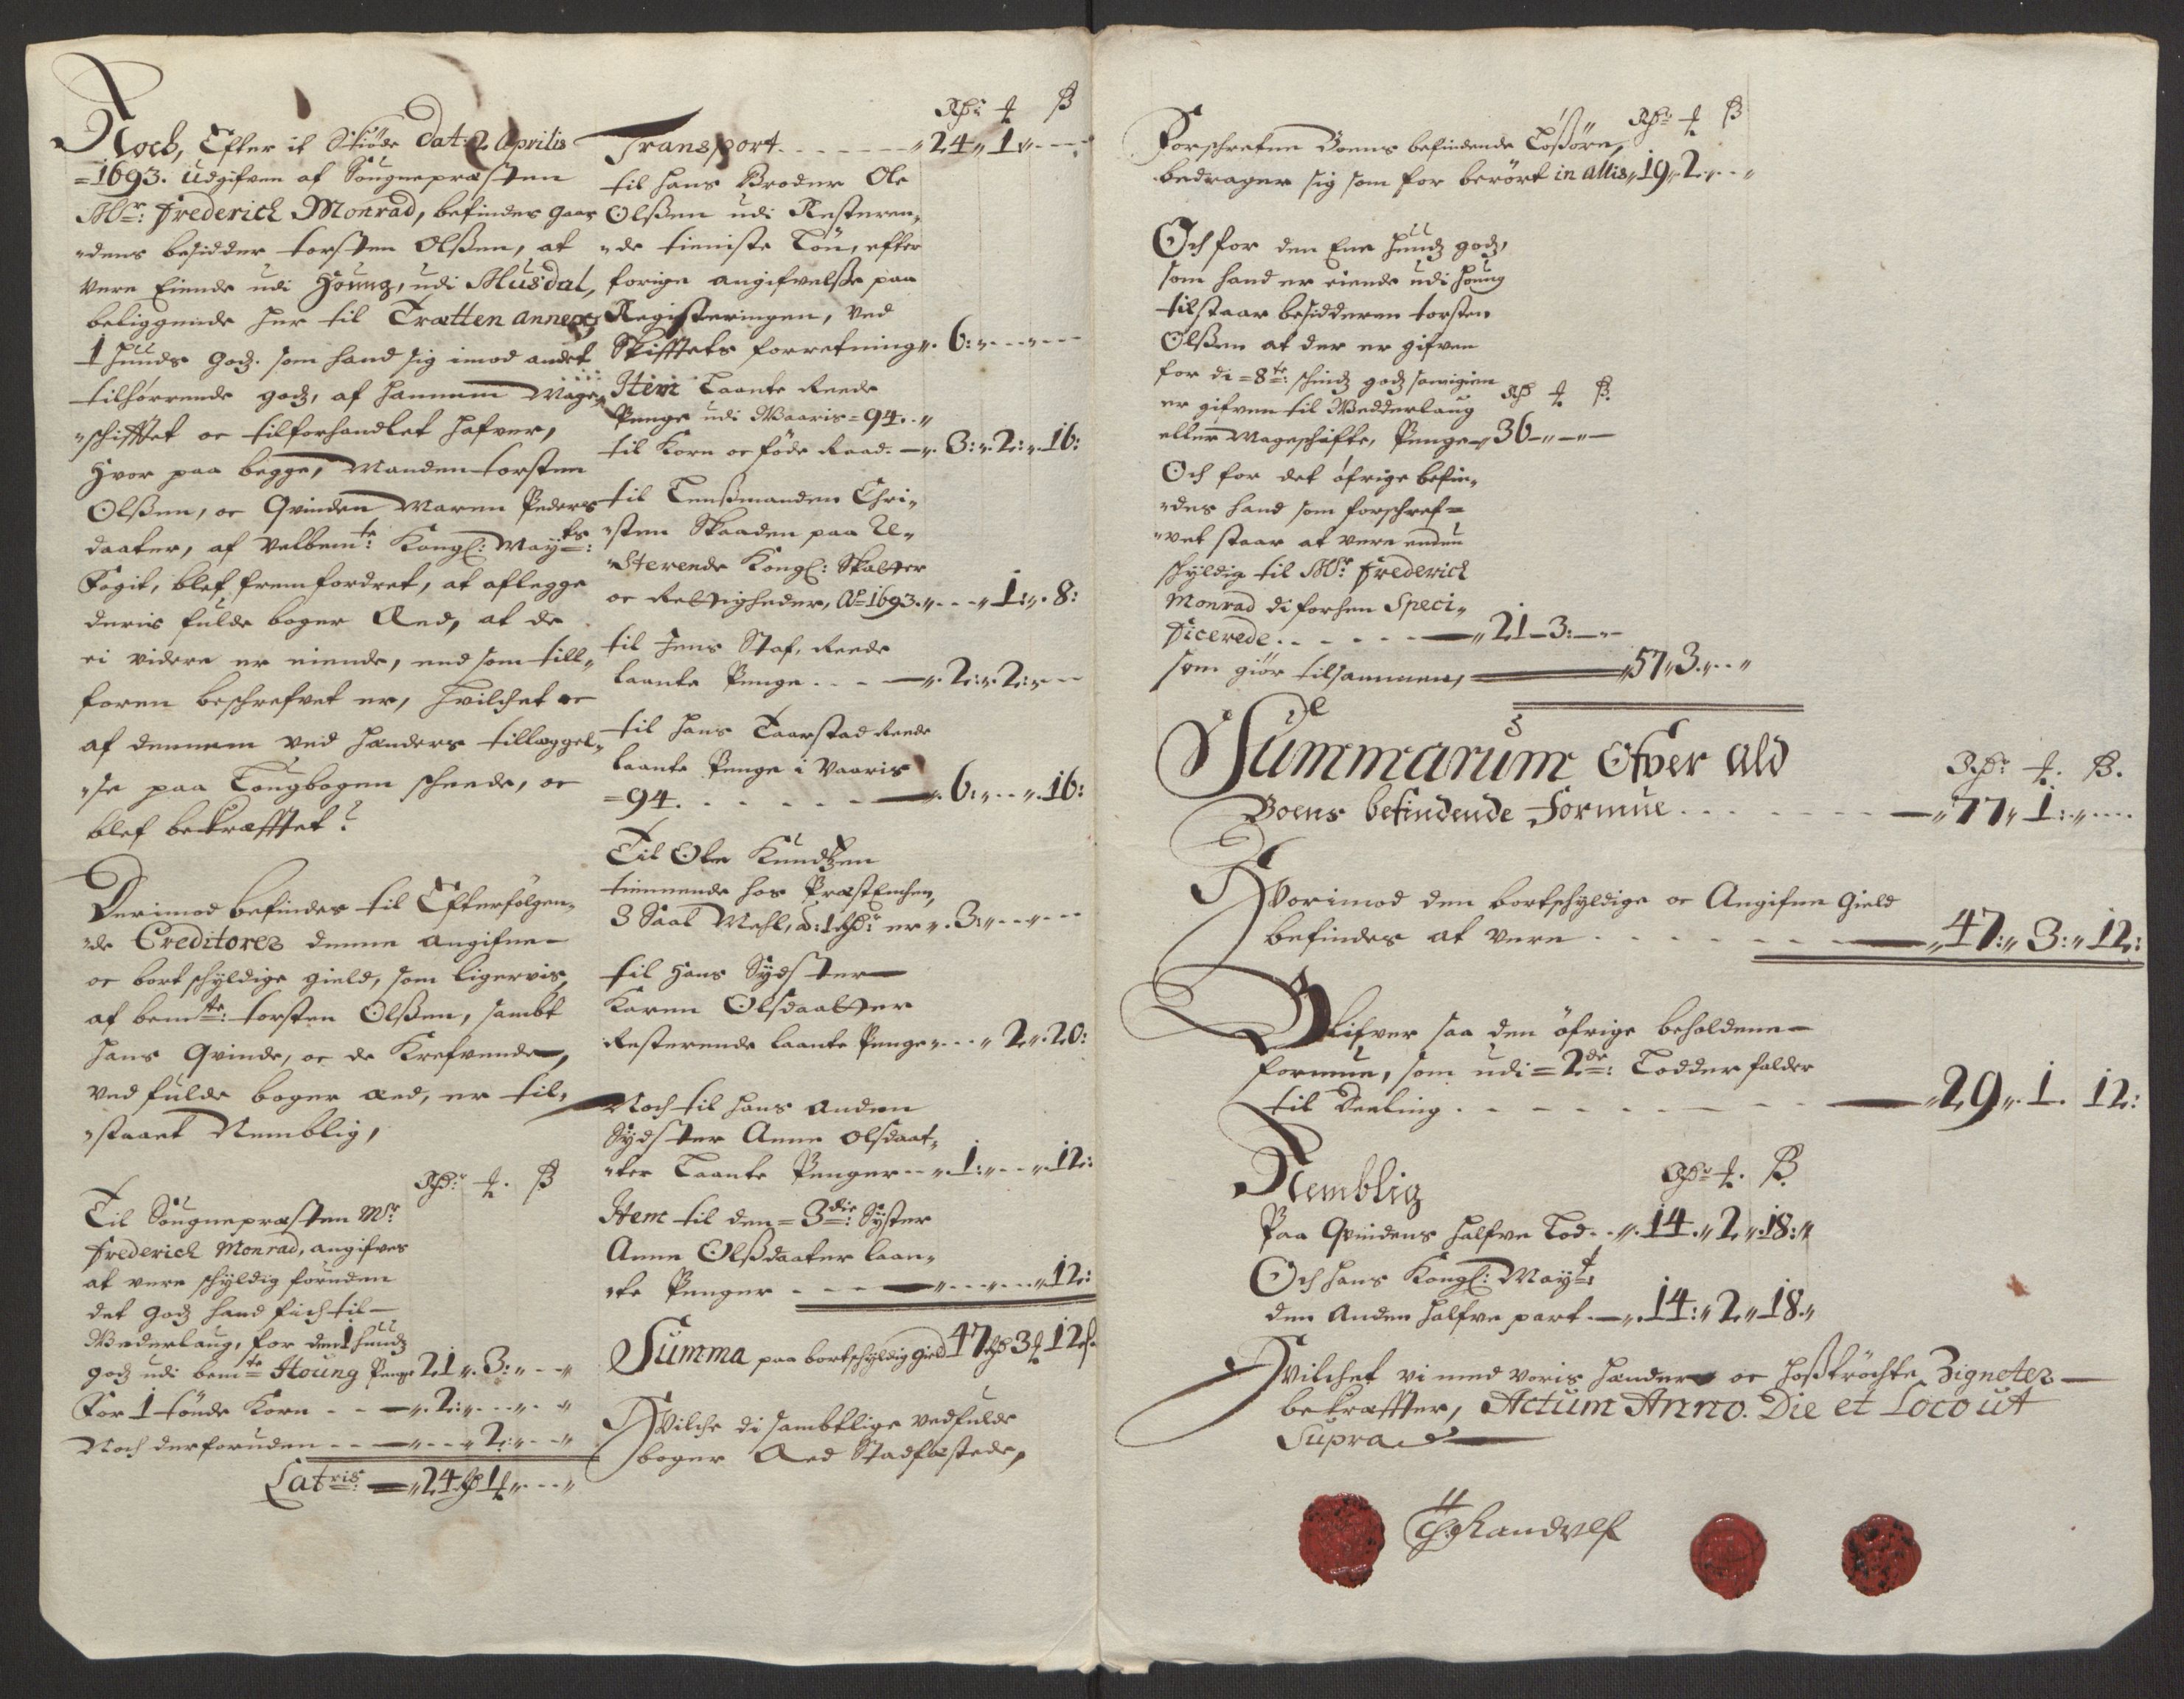 Noch, Efter it Skiöde Dat: 2 Aprilis
=1693. Udgifven af Sougnepræsten
Mr: Frederich Monrad, befindes Gaar
"dens besidder Torsten Olßen, at
vere Eiende udi Houng, udi Musdal,
beliggende her til Trætten annex,
1 huuds godz. som hand sig imod andet
tilhørrende godz, af hannem Mage
"schifftet oc tilforhandlet hafver,
Hvor paa begge, Manden Torsten
Olßen, oc Qvinden Maren Peders
daater, af Velbemte: Kongl: Mayts:
Fogit, blef fremfordret, at aflegge
deris fulde boger Aed, at de
ei videre er eiende, end som till,
foren beschrefvet er, hvilchet oc
af dennem ved henders tilleggel,
"se paa Lougbogen scheede, oc
blef bekræfftet?
Derimod befindes til Efterfölgen,
"de Creditores denne angifne
oc bortschyldige gield, som ligervis,
af bemte: Torsten Olßen, sambt
hans Qvinde, oc de Krefvende,
ved fulde boger aed, er til,
"staaet Nemblig,
Rdr: ꝉ. ß
Til Sougnepræsten Mr
Frederich Monrad, angifves
at vere schyldig foruden
det godz hand fich til
Vederlaug, for den 1 huudz
godz udi bemte Houng Penge 21 " 3: " - - "
For 1 tönde Korn - - - " 2: " - - " - "
Noch derforuden - - - " - - " 2: " - - "
Latris: - " 24 rd 1 ꝉ " - - "
Rdr: ꝉ ß
Transport - - - - - " 24 " 1 " - - -
til hans Broder Ole
Olßen udi Resteren,
"de tieniste Lön, efter
forige angifvelse paa
Registeringen, ved
Skifftets forretning ". 6: " - - " - -
Item Laante Reede
Penge udi Vaaris = 94. - "
til Korn oc föde Raad. - ". 3: ". 2: ". 16:
til Lenßmanden Chri,
"sten Skaaden paa Re,
"sterende Kongl: Skatter
oc Rettigheder, Ao 1693. " - - " 1: ". 8:
til Jens Staf, Reede
laante Penge - - - ". 2: ". 2: " - -
til hans Taarstad Reede
laante Penge i Vaaris
=94. - - - - - ". 6: " - - ". 16:
Til Ole Kundtzen
tiennende hos PræstEnchen,
3 Saal Mehl, a: 1 Rdr: er ". 3: " - - " - -
til hans Sydster
Karen Olsdaatter
Resterende laante Penge " - - " 2 ". 20:
Noch til hans anden
Sydster Anne Olsdaat,
"ter Laante Penger - - " 1: " - - " 12:
Item til den = 3die: Syster
Anne Olßdaater laan,
"te Penger - - - " - - " - - " 12:
Summa paa bortschyldig gield 47 rd 3 ꝉ 12 ß.
Hvilche di sambtlige ved fulde
boger Aed Stadfæstede,
Rdr: ꝉ ß
Forschrefne Boens befindende Lößöre,
bedrager sig som for berört in allis " 19 " 2 " - - "
Och for den Ene huudz godz,
som hand er eiende udi Houng
tilstaar besidderen Torsten
Olßen at der er gifven
for di = 8te: schindz godz som igien Rdr ꝉ ß.
er gifven til Vedderlaug
eller Mageschifte, Penge - " 36 - " - " -
Och for det öfrige befin,
"des hand som forschref=
"vet staar at vere endnu
schyldig til Mr. Frederich
Monrad di forhen Speci,
ficerede - - - - - " 21 - 3: - " -
som giör tilsammen, " 57 " 3 " - - "
Summarum Ofver Ald
Rdr: ꝉ. ß.
Boens befindende Formue - - - - - " 77 " 1: " - - -
Hvorimod den bortschyldige oc Angifne Gield
befindes at vere - - - - - " 47: " 3: " 12:
Blifver saa den öfrige beholdene
formue, som udi = 2de: Lodder falder
til Deeling - - - - - " 29 ". 1. 12:
Nemblig Rdr: ꝉ. ß
Paa Qvindens halfve Lod - - ". 14. " 2 " 18: "
Och hans Kongl: Mayt:
den Anden halfve part - ". 14: " 2 " 18. "
Hvilchet vi med voris hender oc hoßtröchte Zigneter
bekræffter, Actum Anno. Die et Loco ut
Supra